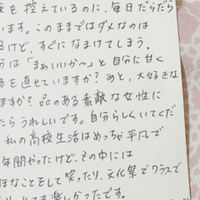 を控えているのに、毎日だらだら
す。このままではダメなのは
るけど、すぐになまけてしまう。
は「まぁいいか〜」と自分に甘く
を直せていますか?あと、大好きな
ますか?品のある素敵な女性に
たらうれしいです。自分らしくいてくだ
私の高校生活はめっちゃ平凡で
年間やったけど、その中には
なことをして笑ったり、文化祭でクラスで
かったです。